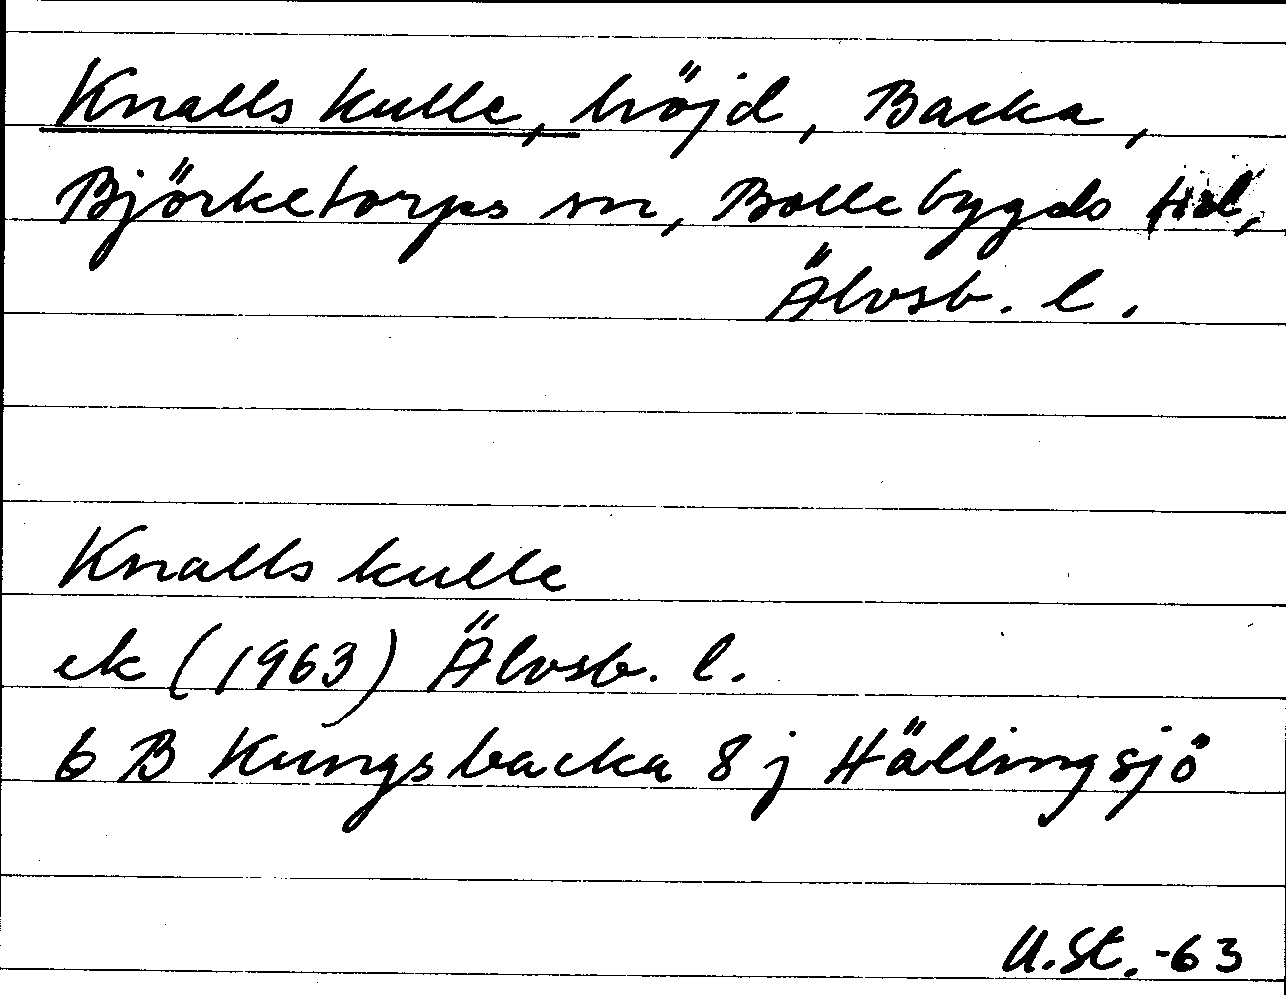 Knalls kulle, höjd, Backa,
Björketorps sn, Bollebygds hd,
Älvsb. l.
Knalls kulle
ek (1963) Älvsb. l.
6 B Kungsbacka 8 j Hällingsjö
U.St.-63